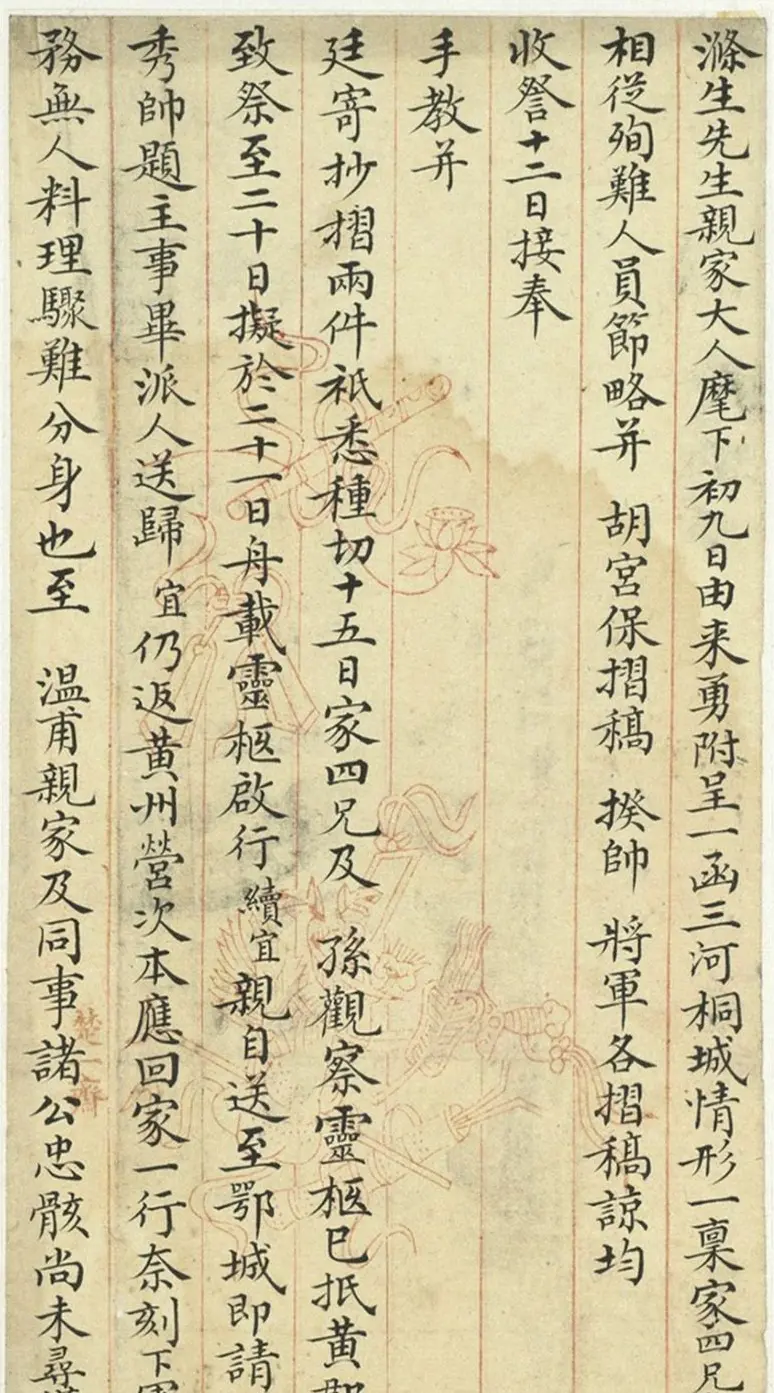 滌生先生親家大人麾下初九日由来勇附呈一函三河桐城情形一稟家四兄
相從殉難人員節略并 胡宮保摺稿 揆帥 將軍各摺稿諒均
收詧十二日接奉
手教并
廷寄抄摺兩件祇悉種切十五日家四兄及 孫觀察靈柩已抵黃郡
致祭至二十日擬於二十一日舟載靈柩啟行續宜親自送至鄂城即請
秀帥題主事畢派人送歸宜仍返黃州營次本應回家一行奈刻下軍
務無人料理驟難分身也至 温甫親家及同事諸公忠骸尚未尋